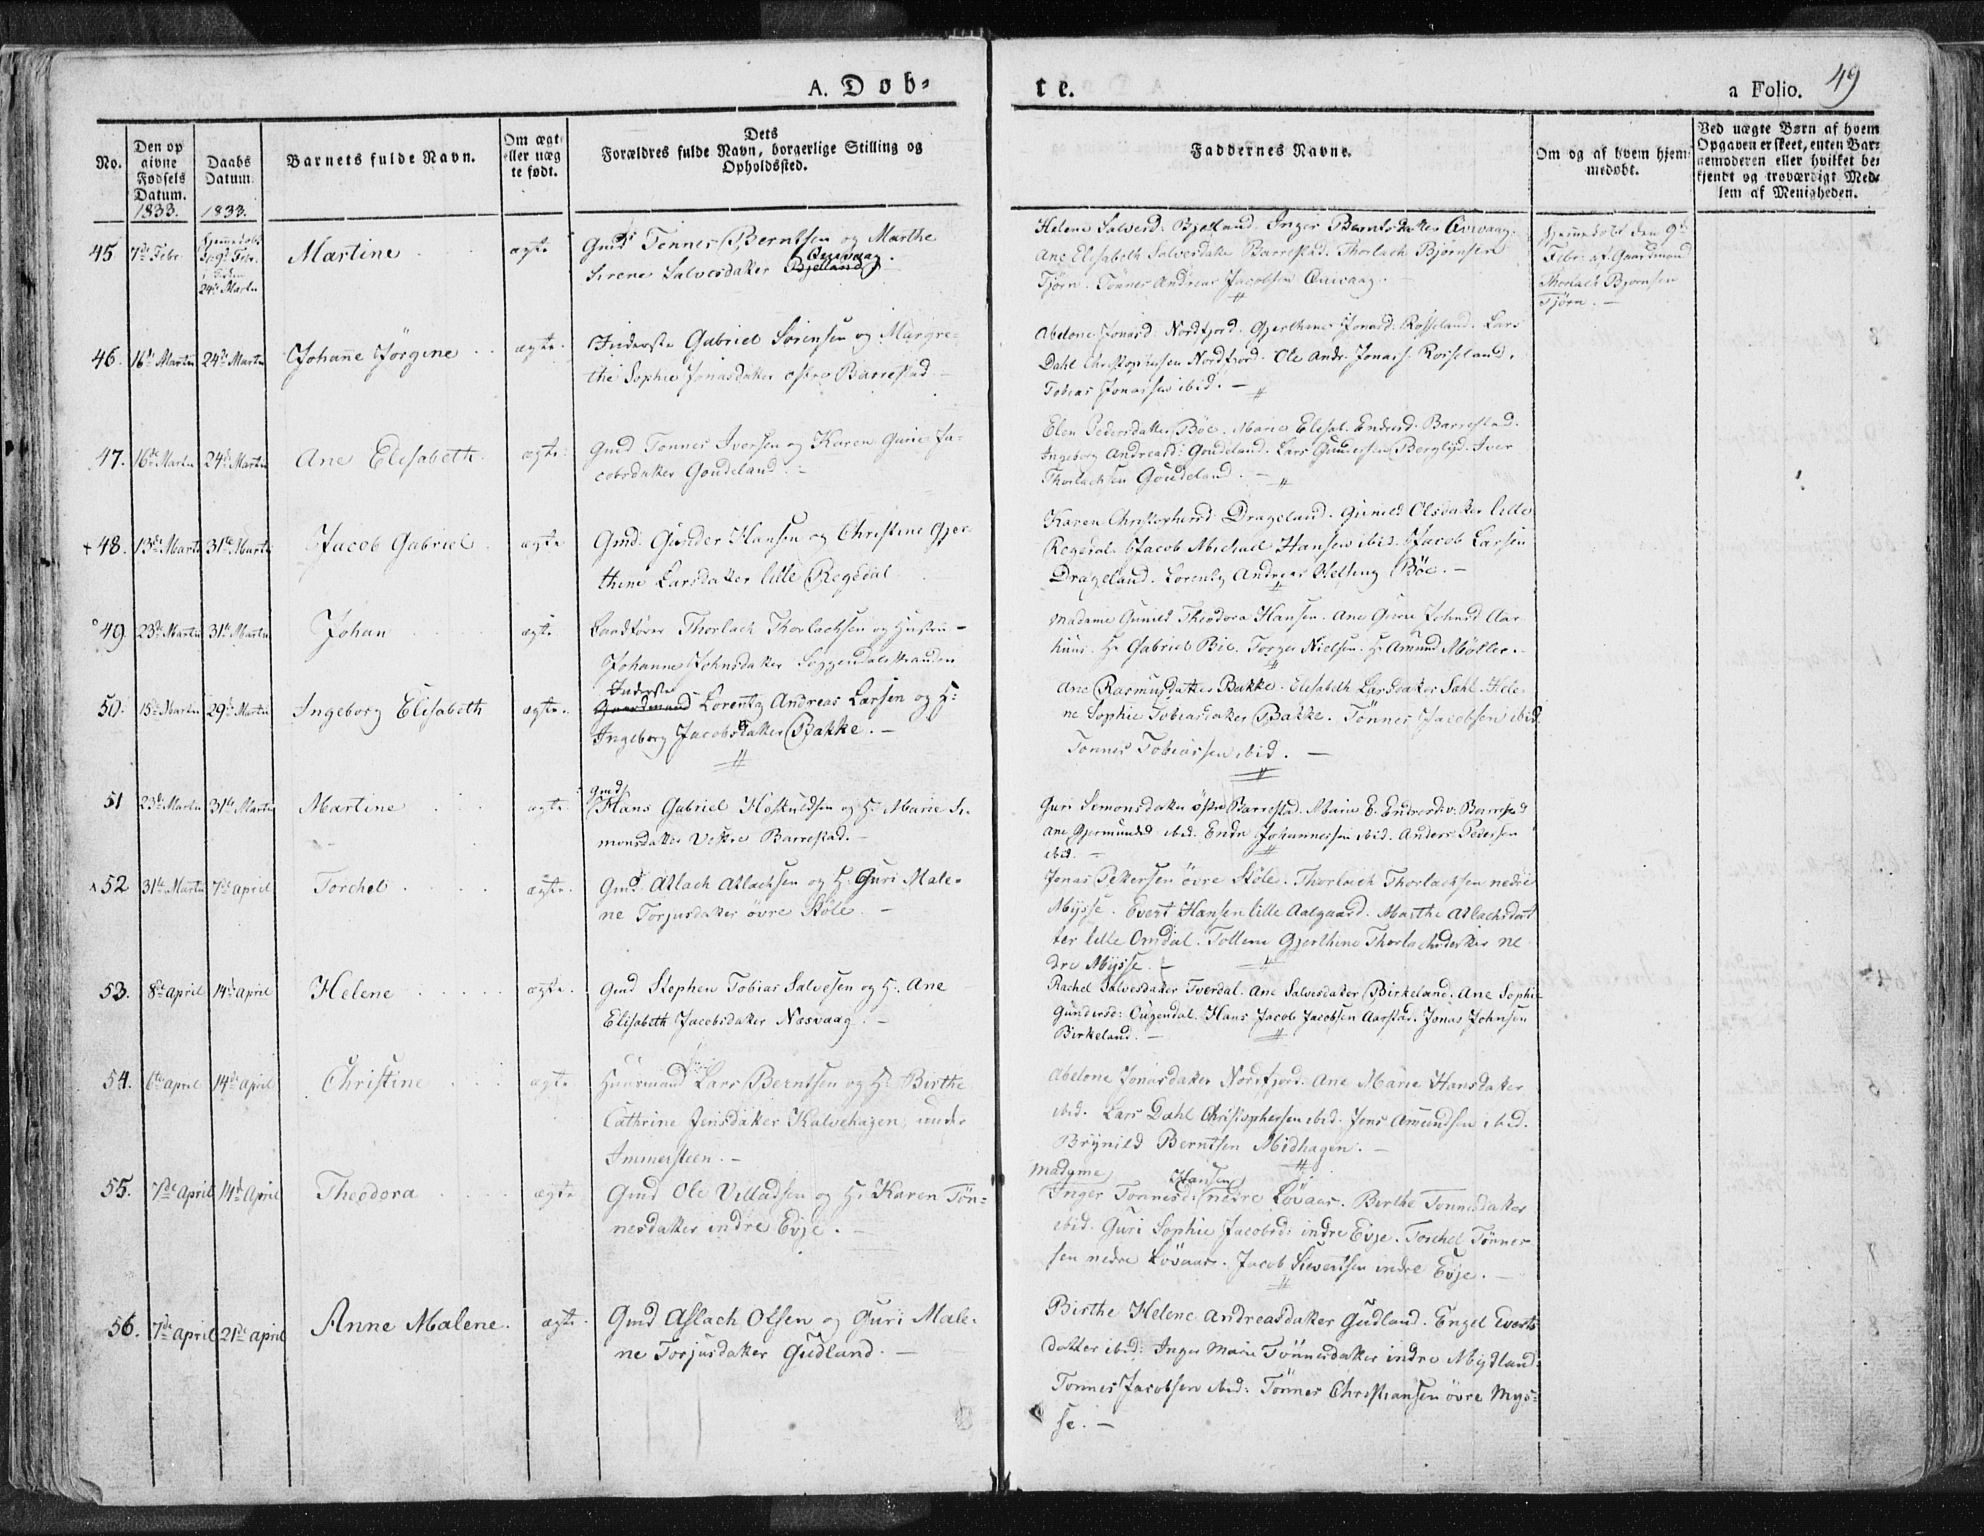 A. Døb=
te.
a Folio. 49
No.
Den op
givne
Fødsels
Datum.
1833.
Daabs
Datum.
1833.
Barnets fulde Navn.
Om ægte
eller uæg
te født.
Dets
Forældres fulde Navn, borgerlige Stilling og
Opholdssted.
Faddernes Navne.
Om og af hvem hjem=
medøbt.
Ved uægte Børn af hvem
Opgaven er skeet, enten Bar=
nemoderen eller hvilket be=
kjendt og troværdigt Med=
lem af Menigheden.
45 7de Febr.
24de Martii
Martine
ægte
Gmd Tønnes Berntsen og Marthe
Qvivaag
Sirene Salvesdatter Bjelland
Helene Salvesd. Bjelland. Inger Berntsdatter Qvivaag.
Ane Elisabeth Salvesdatter Barrestad. Thorlach Bjørnsen
Tjørn. Tönnes Andreas Jacobsen Qvivaag.
Hjemmedøbt den 9de
Febr: af Gaardmand
Thorlach Bjørnsen
Tjørn. -
46. 16de Martii 24de Martii Johanne Jörgine ægte.
Inderste Gabriel Sörensen og Margre=
the Sophie Jonasdatter östre Barrestad
Abelone Jonasd. Nordfjord. Gjerthine Jonasd. Rosseland. Lars
Dahl Christophersen Nordfjord. Ole Andr. Jonass. Rosseland.
Tobias Jonassen ibid. -
47. 16de Martii 24de Martii Ane Elisabeth. ægte.
Gmd Tønnes Iversen og Karen Gurie Ja=
cobsdatter Goudeland.
Elen Pedersdatter Böe. Marie Elisab. Endresd. Barrestad.
Ingeborg Andreasd: Goudeland. Lars Gundersen Berglyd. Iver
Thorlachsen Goudeland. -
+ 48. 13de Martii 31te Martii Jacob Gabriel. ægte
Gmd. Gunder Hansen og Christine Gjer=
thine Larsdatter lille Regedal
Karen Christophersd. Drageland. Gunild Olsdatter lille
Regedal. Jacob Michael Hansen ibid. Jacob Larsen
Drageland. Lorentz Andreas Helting Böe. -
49 23de Martii 31te Martii Johan ægte
Landfører Thorlach Thorlachsen og Hustru -
Johanne Johnsdatter Soggendalsstranden
Madame Gunild Theodora Hansen. Ane Gurie Johnsd Aar=
huus. Hr Gabriel Bie. Torger Nielsen. Hr Amund Möller.
50. 15de Martii 29de Martii Ingeborg Elisabeth ægte.
Inderste
Gaardmand Lorentz Andreas Larsen og H:
Ingeborg Jacobsdatter Bakke. -
Ane Rasmusdatter Bakke. Elisabeth Larsdatter Sæhl. Hele=
ne Sophie Tobiasdatter Bakke. Tönnes Jacobsen ibid.
Tønnes Tobiassen ibid. -
51 23de Martii 31te Martii Martine ægte
Gmd
Hans Gabriel Hoskuldsen og H: Marie Si=
monsdatter Vestre Barrestad. -
Guri Simonsdatter östre Barrestad. Marie E. Endresd. v. Barrestad
Ane Gjermundsd ibid. Endre Johannessen ibid. Anders Pedersen
ibid. -
52 31te Martii 7de April Torchel ægte.
Gmd Atlach Atlachsen og H. Guri Male=
ne Torjusdatter övre Stöle. -
Jonas Pettersen övre Stöle. Thorlach Thorlachsen nedre
Mysse. Evert Hansen lille Aalgaard. Marthe Atlachsdat=
ter lille Omdal. Tollene Gjerthine Thorlachsdatter ne=
dre Mysse. -
53. 8de April 14de April Helene ægte.
Gmd Stephen Tobias Salvesen og H: Ane
Elisabeth Jacobsdatter Næsvaag. -
Rachel Salvesdatter Tverdal. Ane Salvesdatter Birkeland. Ane Sophie
Gundersd: Ougendal. Hans Jacob Jacobsen Aarstad. Jonas Johnsen
Birkeland. -
54. 6te April 14de April Christine ægte
Huusmand Lars Berntsen og H: Birthe
Cathrine Jensdatter Kalvehagen, under
Immersteen. -
Abelone Jonasdatter Nordfjord. Ane Marie Hansdatter
ibid. Lars Dahl Christophersen ibid. Jens Amundsen ibid.
Brynild Berntsen Midhagen. -
55. 7de April 14de April Theodora ægte
Gmd Ole Villadsen og H: Karen Tön=
nesdatter indre Evje. -
Madame Hansen
Inger Tonnesd: nedre Lövaas. Birthe Tonnesdatter
ibid. Guri Sophie Jacobsd: indre Evje. Torchel Tönnes=
sen nedre Lövaas. Jacob Sivertsen indre Evje. -
56. 7de April 21de April Anne Malene. ægte.
Gmd Aslach Olsen og Guri Male=
ne Torjusdatter Gudland. -
Birthe Helene Andreasdatter Gudland. Engel Everts=
datter ibid: Inger Marie Tönnesdatter indre Mydland.
Tonnes Jacobsen ibid: Tönnes Christiansen övre Mys=
se. -